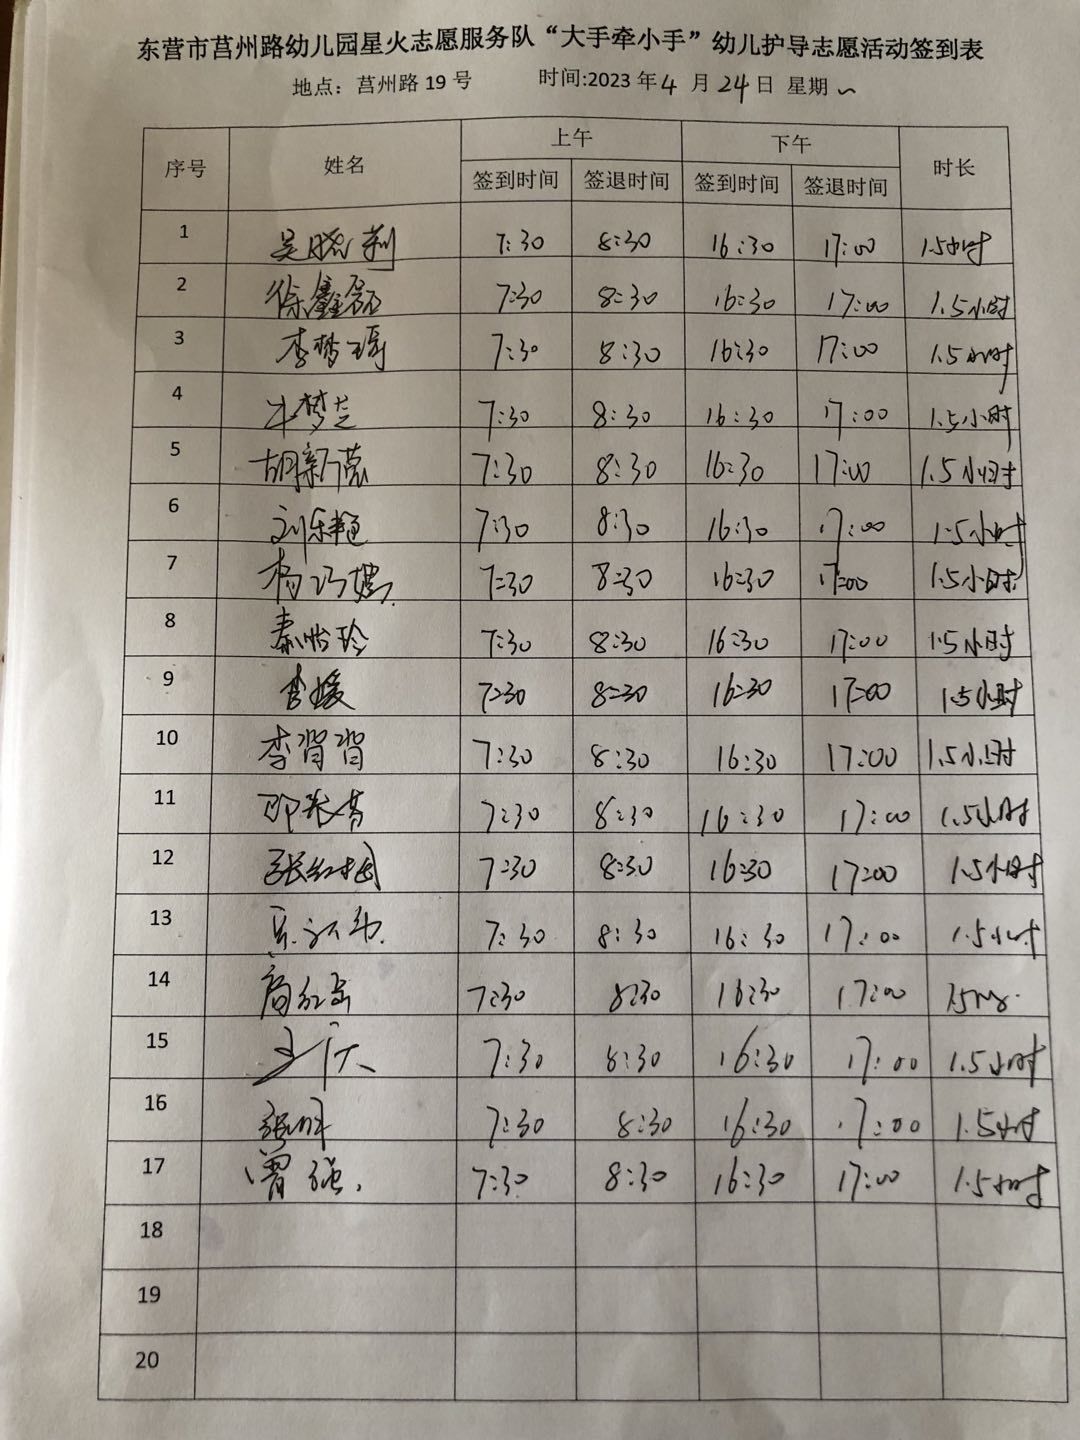 东营市莒州路幼儿园星火志愿服务队“大手牵小手”幼儿护导志愿活动签到表
地点：莒州路 19 号 时间:2023 年 4 月 24 日 星期 一
序号 姓名 上午 下午 时长
签到时间 签退时间 签到时间 签退时间
1 吴晓莉 7:30 8:30 16:30 17:00 1.5小时
2 徐鑫磊 7:30 8:30 16:30 17:00 1.5小时
3 李梦瑶 7:30 8:30 16:30 17:00 1.5小时
4 牛梦芝 7:30 8:30 16:30 17:00 1.5小时
5 胡新蕊 7:30 8:30 16:30 17:00 1.5小时
6 刘乐艳 7:30 8:30 16:30 17:00 1.5小时
7 杨巧嫚 7:30 8:30 16:30 17:00 1.5小时
8 秦怡玲 7:30 8:30 16:30 17:00 1.5小时
9 李媛 7:30 8:30 16:30 17:00 1.5小时
10 李背背 7:30 8:30 16:30 17:00 1.5小时
11 7:30 8:30 16:30 17:00 1.5小时
12 张红梅 7:30 8:30 16:30 17:00 1.5小时
13 7:30 8:30 16:30 17:00 1.5小时
14 7:30 8:30 16:30 17:00
15 7:30 8:30 16:30 17:00 1.5小时
16 7:30 8:30 16:30 17:00 1.5小时
17 曾强 7:30 8:30 16:30 17:00 1.5小时
18
19
20